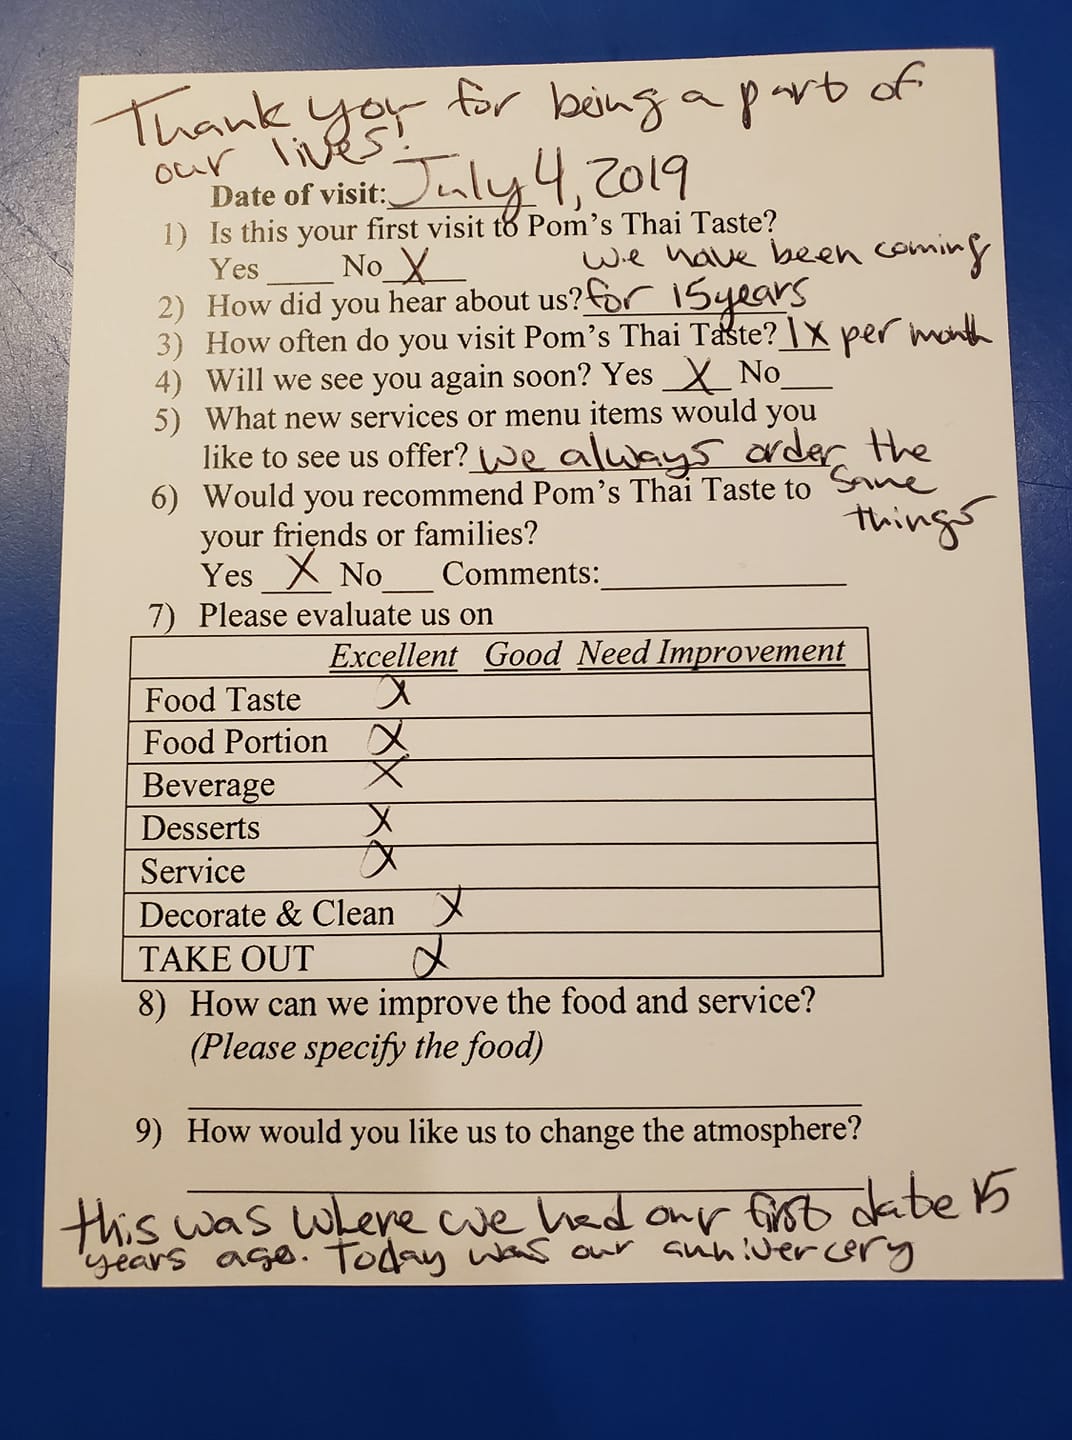 Thank you for being a part of
our lives!
Date of visit: July 4, 2019
1) Is this your first visit to Pom's Thai Taste?
Yes ____ No X
we have been coming
2) How did you hear about us? for 15 years
3) How often do you visit Pom's Thai Taste? 1x per month
4) Will we see you again soon? Yes X No____
5) What new services or menu items would you
like to see us offer? we always order the
same
things
6) Would you recommend Pom's Thai Taste to
your friends or families?
Yes X No____ Comments:____
7) Please evaluate us on
Excellent Good Need Improvement
Food Taste X
Food Portion X
Beverage X
Desserts X
Service X
Decorate & Clean X
TAKE OUT X
8) How can we improve the food and service?
(Please specify the food)
9) How would you like us to change the atmosphere?
this was where we had our first date 15
years ago. Today was our annivercery